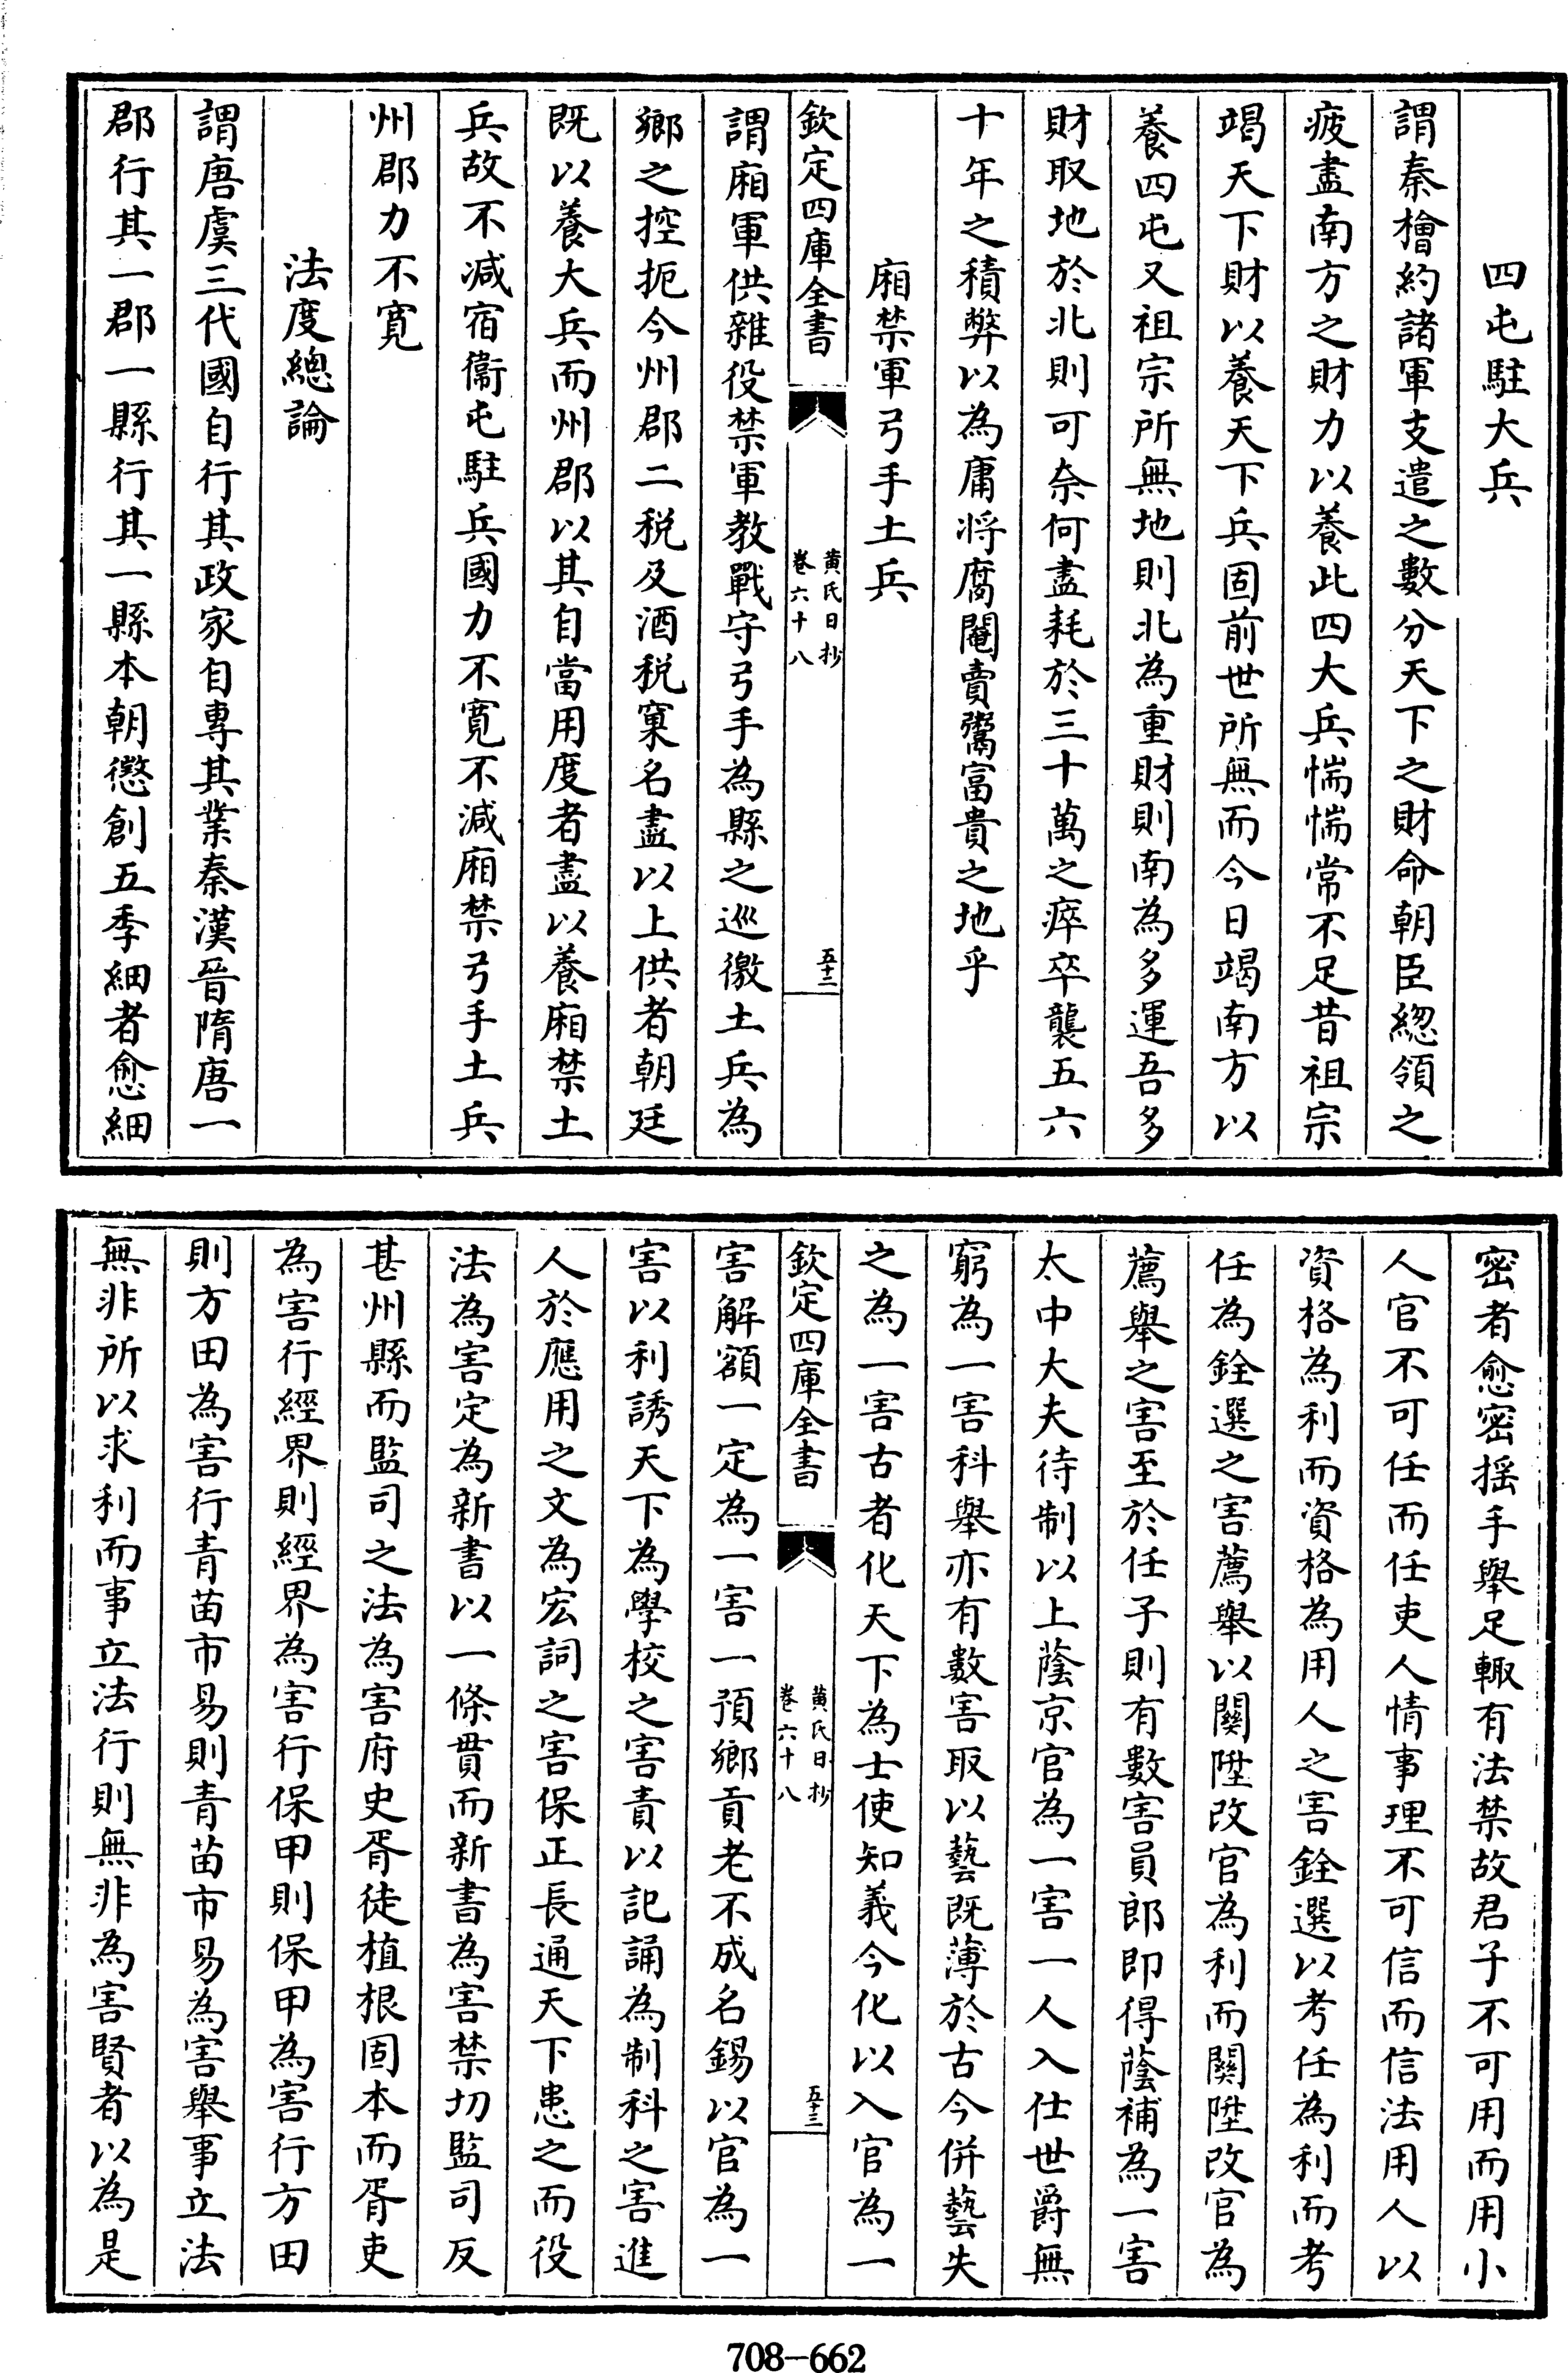 四屯駐大兵
謂秦檜約諸軍支遣之數分天下之財命朝臣總領之
疲盡南方之財力以養此四大兵惴惴常不足昔祖宗
竭天下財以養天下兵固前世所無而今日竭南方以
養四屯又祖宗所無地則北為重財則南為多運吾多
財取地於北則可奈何盡耗於三十萬之瘁卒襲五六
十年之積弊以為庸將腐閹賣鬻富貴之地乎
廂禁軍弓手土兵
欽定四庫全書
黃氏日抄
卷六十八
五十二
謂廂軍供雜役禁軍教戰守弓手為縣之巡徼土兵為
鄉之控扼今州郡二税及酒税窠名盡以上供者朝廷
既以養大兵而州郡以其自當用度者盡以養廂禁土
兵故不減宿衞屯駐兵國力不寛不減廂禁弓手土兵
州郡力不寛
法度總論
謂唐虞三代國自行其政家自專其業秦漢晉隋唐一
郡行其一郡一縣行其一縣本朝懲創五季細者愈細
密者愈密揺手舉足輙有法禁故君子不可用而用小
人官不可任而任吏人情事理不可信而信法用人以
資格為利而資格為用人之害銓選以考任為利而考
任為銓選之害薦舉以關陞改官為利而關陞改官為
薦舉之害至於任子則有數害員郎即得蔭補為一害
太中大夫待制以上蔭京官為一害一人入仕世爵無
窮為一害科舉亦有數害取以藝既薄於古今併藝失
之為一害古者化天下為士使知義今化以入官為一
欽定四庫全書
黃氏日抄
卷六十八
五十三
害解額一定為一害一預鄉貢老不成名錫以官為一
害以利誘天下為學校之害責以記誦為制科之害進
人於應用之文為宏詞之害保正長通天下患之而役
法為害定為新書以一條貫而新書為害禁切監司反
甚州縣而監司之法為害府史胥徒植根固本而胥吏
為害行經界則經界為害行保甲則保甲為害行方田
則方田為害行青苗市易則青苗市易為害舉事立法
無非所以求利而事立法行則無非為害賢者以為是
708-662